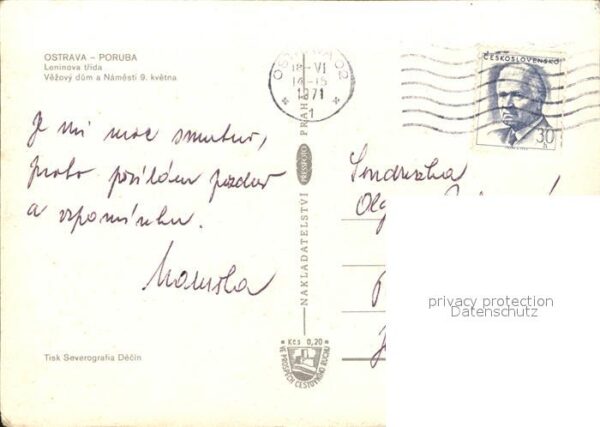 OSTRAVA – PORUBA
Leninova třída
Věžový dům a Náměstí 9. května
OSTRAVA 02
18 -VI
14-15
1971
1
ČESKOSLOVENSKO
30
h
Je mi moc smutno,
proto posílám pozdrav
a vzpomínku.
NAKLADATELSTVÍ PRESSFOTO PRAHA
Kčs 0,20
VE PROSPĚCH CESTOVNÍHO RUCHU
Tisk Severografia Děčín
privacy protection
Datenschutz